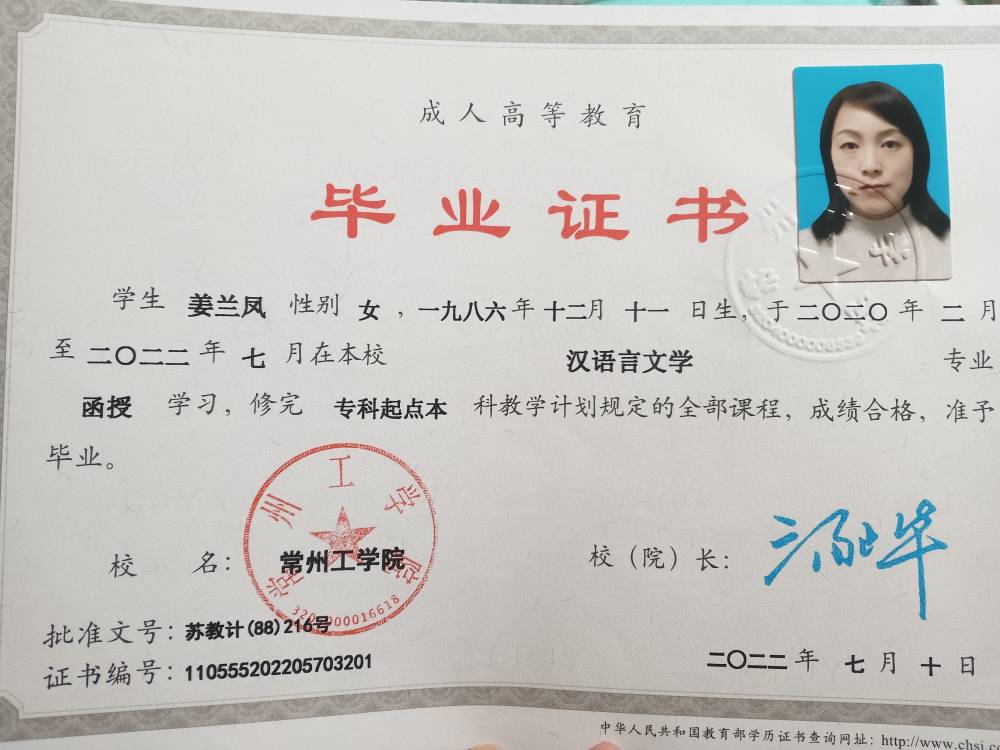 成人高等教育
毕业证书
学生 姜兰凤 性别 女，一九八六年十二月十一日生，于二〇二〇年二月
至二〇二二年七月在本校 汉语言文学 专业
函授 学习，修完 专科起点本 科教学计划规定的全部课程，成绩合格，准予
毕业。
常州工学院
校 名：常州工学院
校（院）长：
批准文号：苏教计(88)216号
证书编号：110555202205703201
二〇二二年七月十日
中华人民共和国教育部学历证书查询网址：http://www.chsi.c